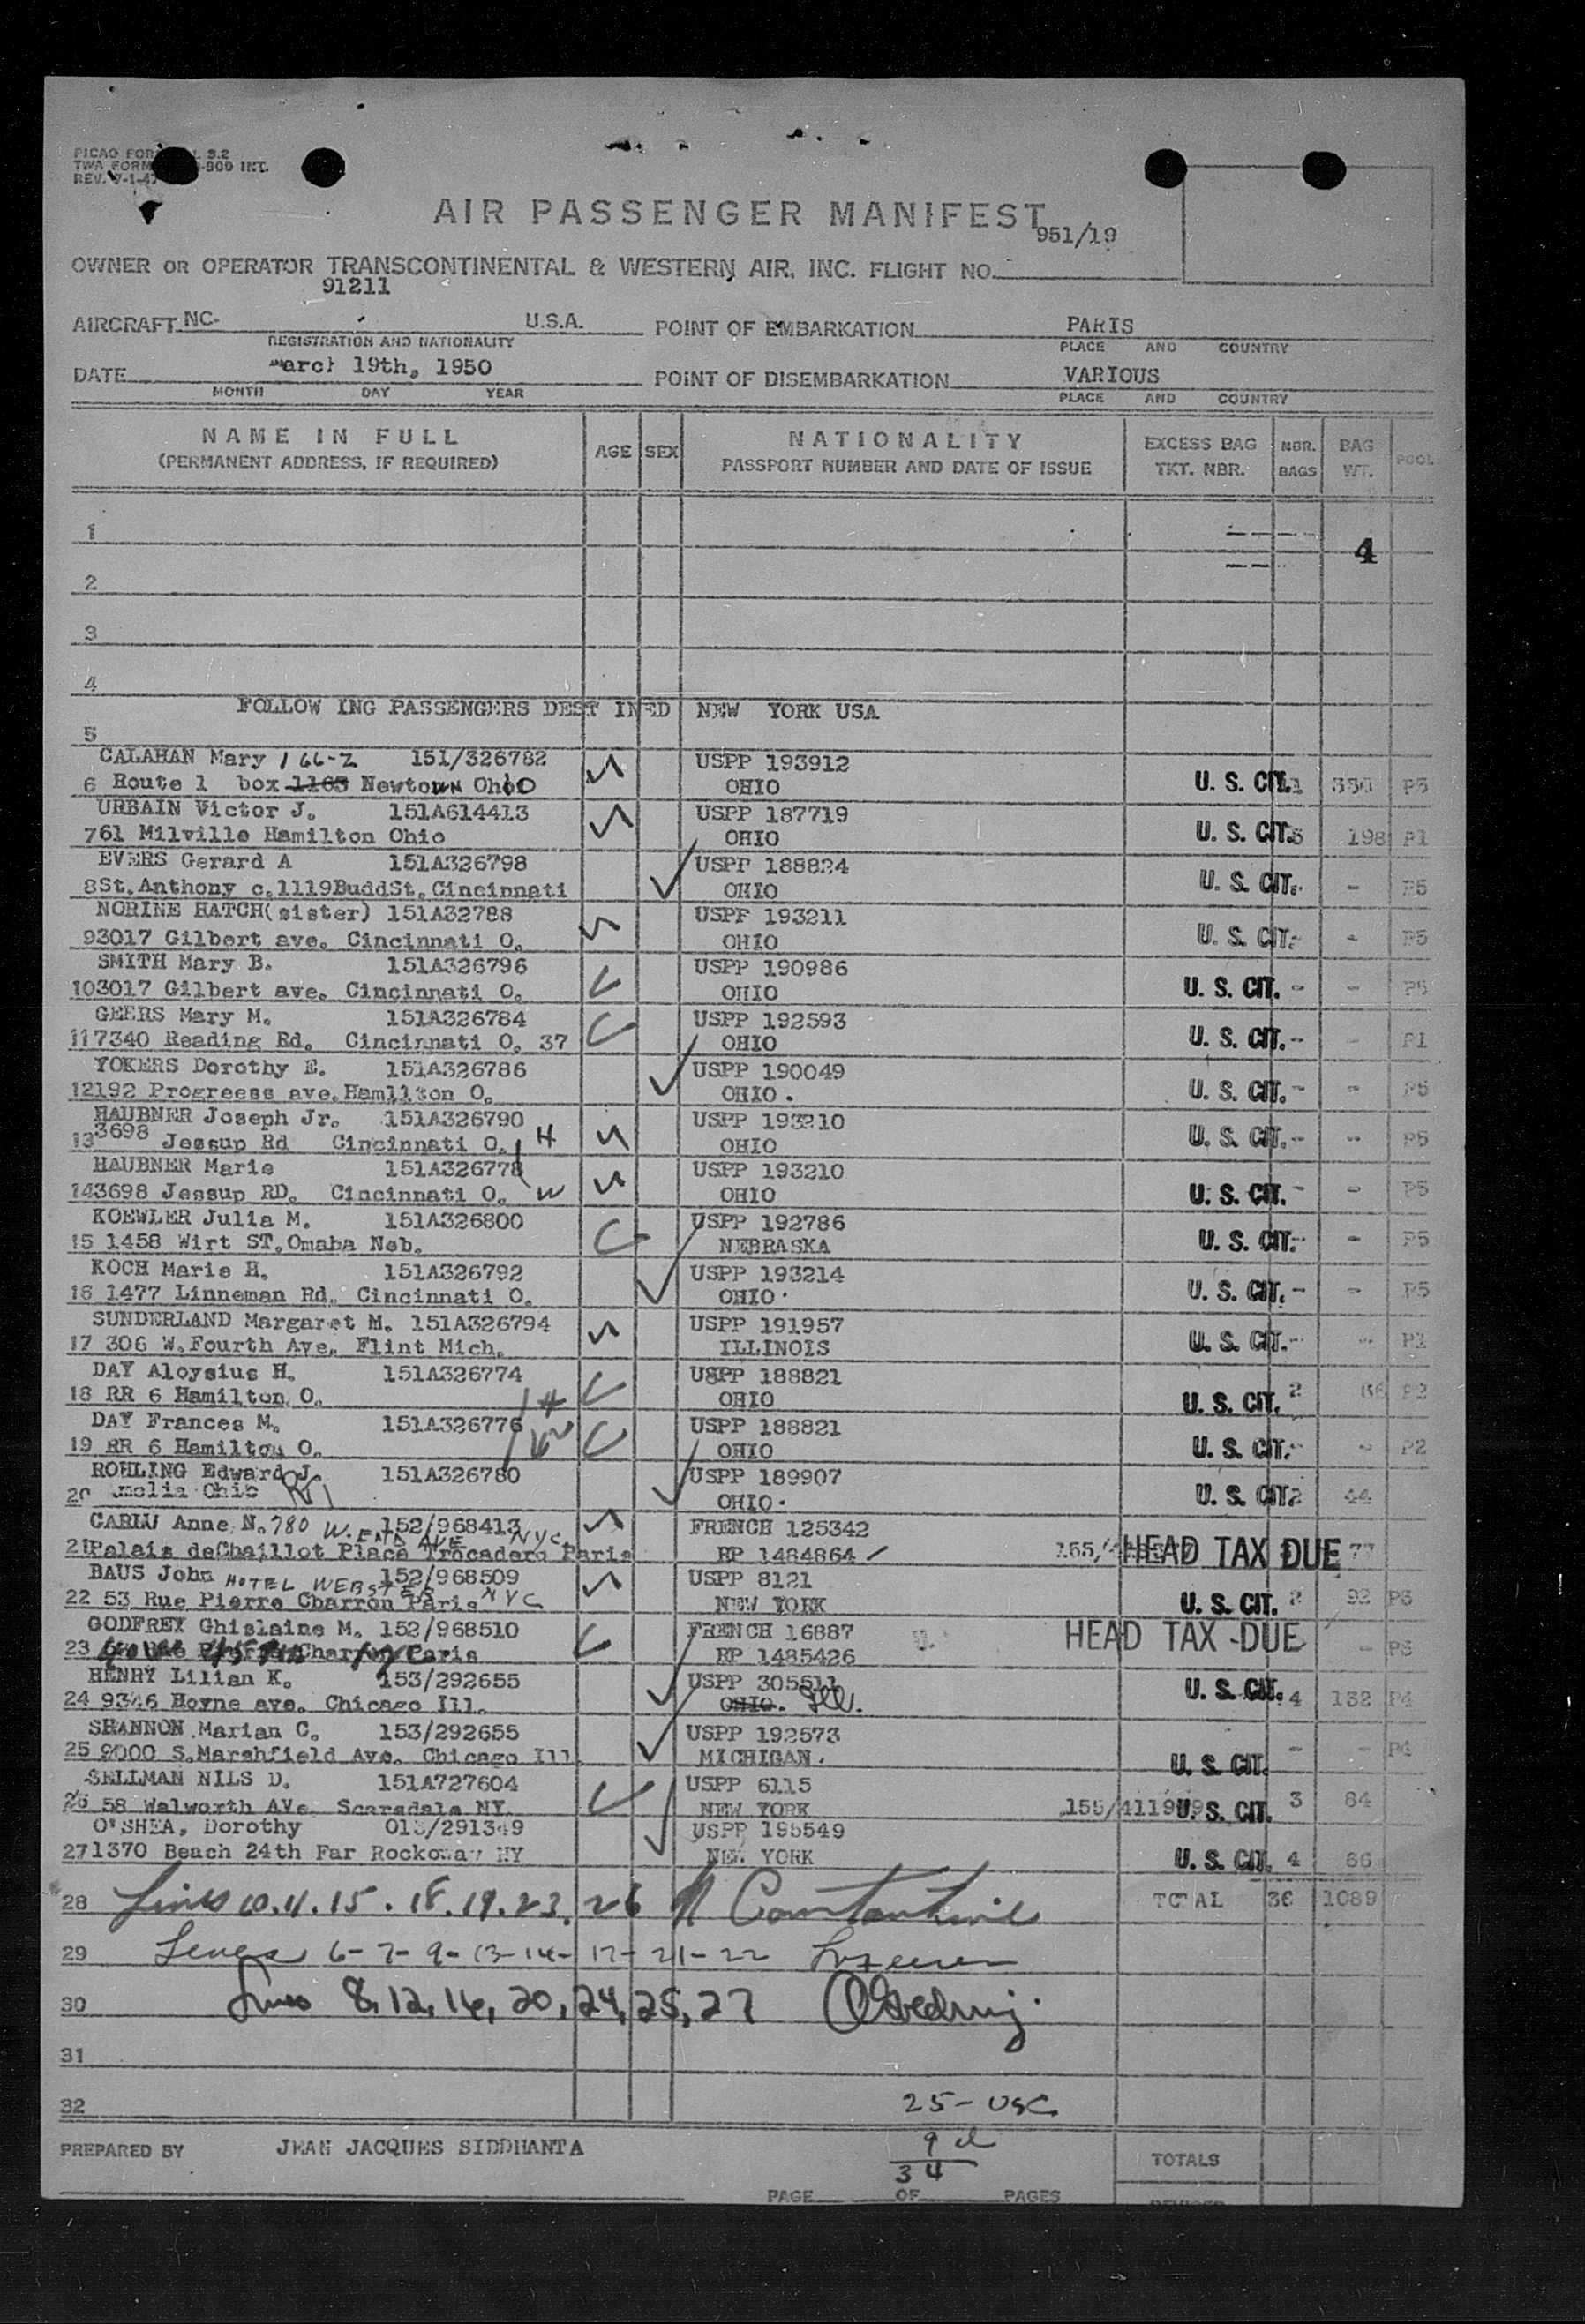 PICAO FOR 3.2
TWA FORM -900 INT.
REV.
AIR PASSENGER MANIFEST
951/19
OWNER OR OPERATOR TRANSCONTINENTAL & WESTERN AIR, INC. FLIGHT NO.
91211
AIRCRAFT NC- U.S.A. POINT OF EMBARKATION PARIS
REGISTRATION AND NATIONALITY PLACE AND COUNTRY
DATE March 19th, 1950 POINT OF DISEMBARKATION VARIOUS
MONTH DAY YEAR PLACE AND COUNTRY
NAME IN FULL AGE SEX NATIONALITY EXCESS BAG NBR. BAG POOL
(PERMANENT ADDRESS, IF REQUIRED) PASSPORT NUMBER AND DATE OF ISSUE TKT. NBR. BAGS WT.
1
4
2
3
4
FOLLOW ING PASSENGERS DEST INED NEW YORK USA
5
CALAHAN Mary 166-Z 151/326782 USPP 193912
6 Route 1 box 1163 Newtown Ohio OHIO U. S. CIT. 350 P5
URBAIN Victor J. 151A614413 USPP 187719
761 Milville Hamilton Ohio OHIO U. S. CIT. 198 P1
EVERS Gerard A 151A326798 USPP 188824
8St.Anthony c.1119BuddSt.Cincinnati OHIO U. S. CIT. - P5
NORINE HATCH(sister) 151A32788 USPP 193211
93017 Gilbert ave. Cincinnati O. OHIO U. S. CIT. - P5
SMITH Mary B. 151A326796 USPP 190986
103017 Gilbert ave. Cincinnati O. OHIO U. S. CIT. - - P5
GEERS Mary M. 151A326784 USPP 192593
117340 Reading Rd. Cincinnati O. 37 OHIO U. S. CIT. - - P1
YOKERS Dorothy E. 151A326786 USPP 190049
12192 Progreess ave.Hamilton O. OHIO . U. S. CIT. - - P5
HAUBNER Joseph Jr. 151A326790 USPP 193210
13 3698 Jessup Rd Cincinnati O. H OHIO U. S. CIT. - - P5
HAUBNER Marie 151A326778 USPP 193210
143698 Jessup RD. Cincinnati O. W OHIO U. S. CIT. - - P5
KOEWLER Julia M. 151A326800 USPP 192786
15 1458 Wirt ST.Omaha Neb. NEBRASKA U. S. CIT. - P5
KOCH Marie H. 151A326792 USPP 193214
16 1477 Linneman Rd. Cincinnati O. OHIO U. S. CIT. - - P5
SUNDERLAND Margaret M. 151A326794 USPP 191957
17 306 W.Fourth Ave. Flint Mich. ILLINOIS U. S. CIT. - - P1
DAY Aloysius H. 151A326774 USPP 188821
18 RR 6 Hamilton O. H OHIO U. S. CIT. 2 P2
DAY Frances M. 151A326776 USPP 188821
19 RR 6 Hamilton O. W OHIO U. S. CIT. - - P2
ROHLING Edward J. 151A326780 USPP 189907
20 Amelia Ohio R1 OHIO U. S. CIT. 2 44
CARLU Anne N. 780 W. END AVE NYC 152/968413 FRENCH 125342
21Palais deChaillot Place Trocadero Paris RP 1484864 155/ HEAD TAX DUE 77
BAUS John HOTEL WEBSTER NYC 152/968509 USPP 8121
22 53 Rue Pierre Charron Paris NEW YORK U. S. CIT. 2 92 P3
GODFREY Ghislaine M. 152/968510 FRENCH 16887 HEAD TAX DUE
23 Paris RP 1485426 -
HENRY Lilian K. 153/292655 USPP 305511
24 9346 Hoyne ave. Chicago Ill. OHIO. Ill. U. S. CIT. 4 132 P4
SHANNON Marian C. 153/292655 USPP 192573
25 9000 S.Marshfield Ave. Chicago Ill. MICHIGAN. U. S. CIT. - - P4
SELLMAN NILS D. 151A727604 USPP 6115
26 58 Walworth AVe Scarsdale NY. NEW YORK U. S. CIT. 3 84
O'SHEA, Dorothy 013/291349 USPP 195549
271370 Beach 24th Far Rockoway NY NEW YORK U. S. CIT. 4 66
28 Lines 10.11.15.18.19.23.26 TOTAL 36 1089
29 Lines 6-7-9-13-14-17-21-22
30 Lines 8,12,16,20,24,25,27
31
32 25 - USC
PREPARED BY JEAN JACQUES SIDDHANTA 9 TOTALS
34
PAGE OF PAGES